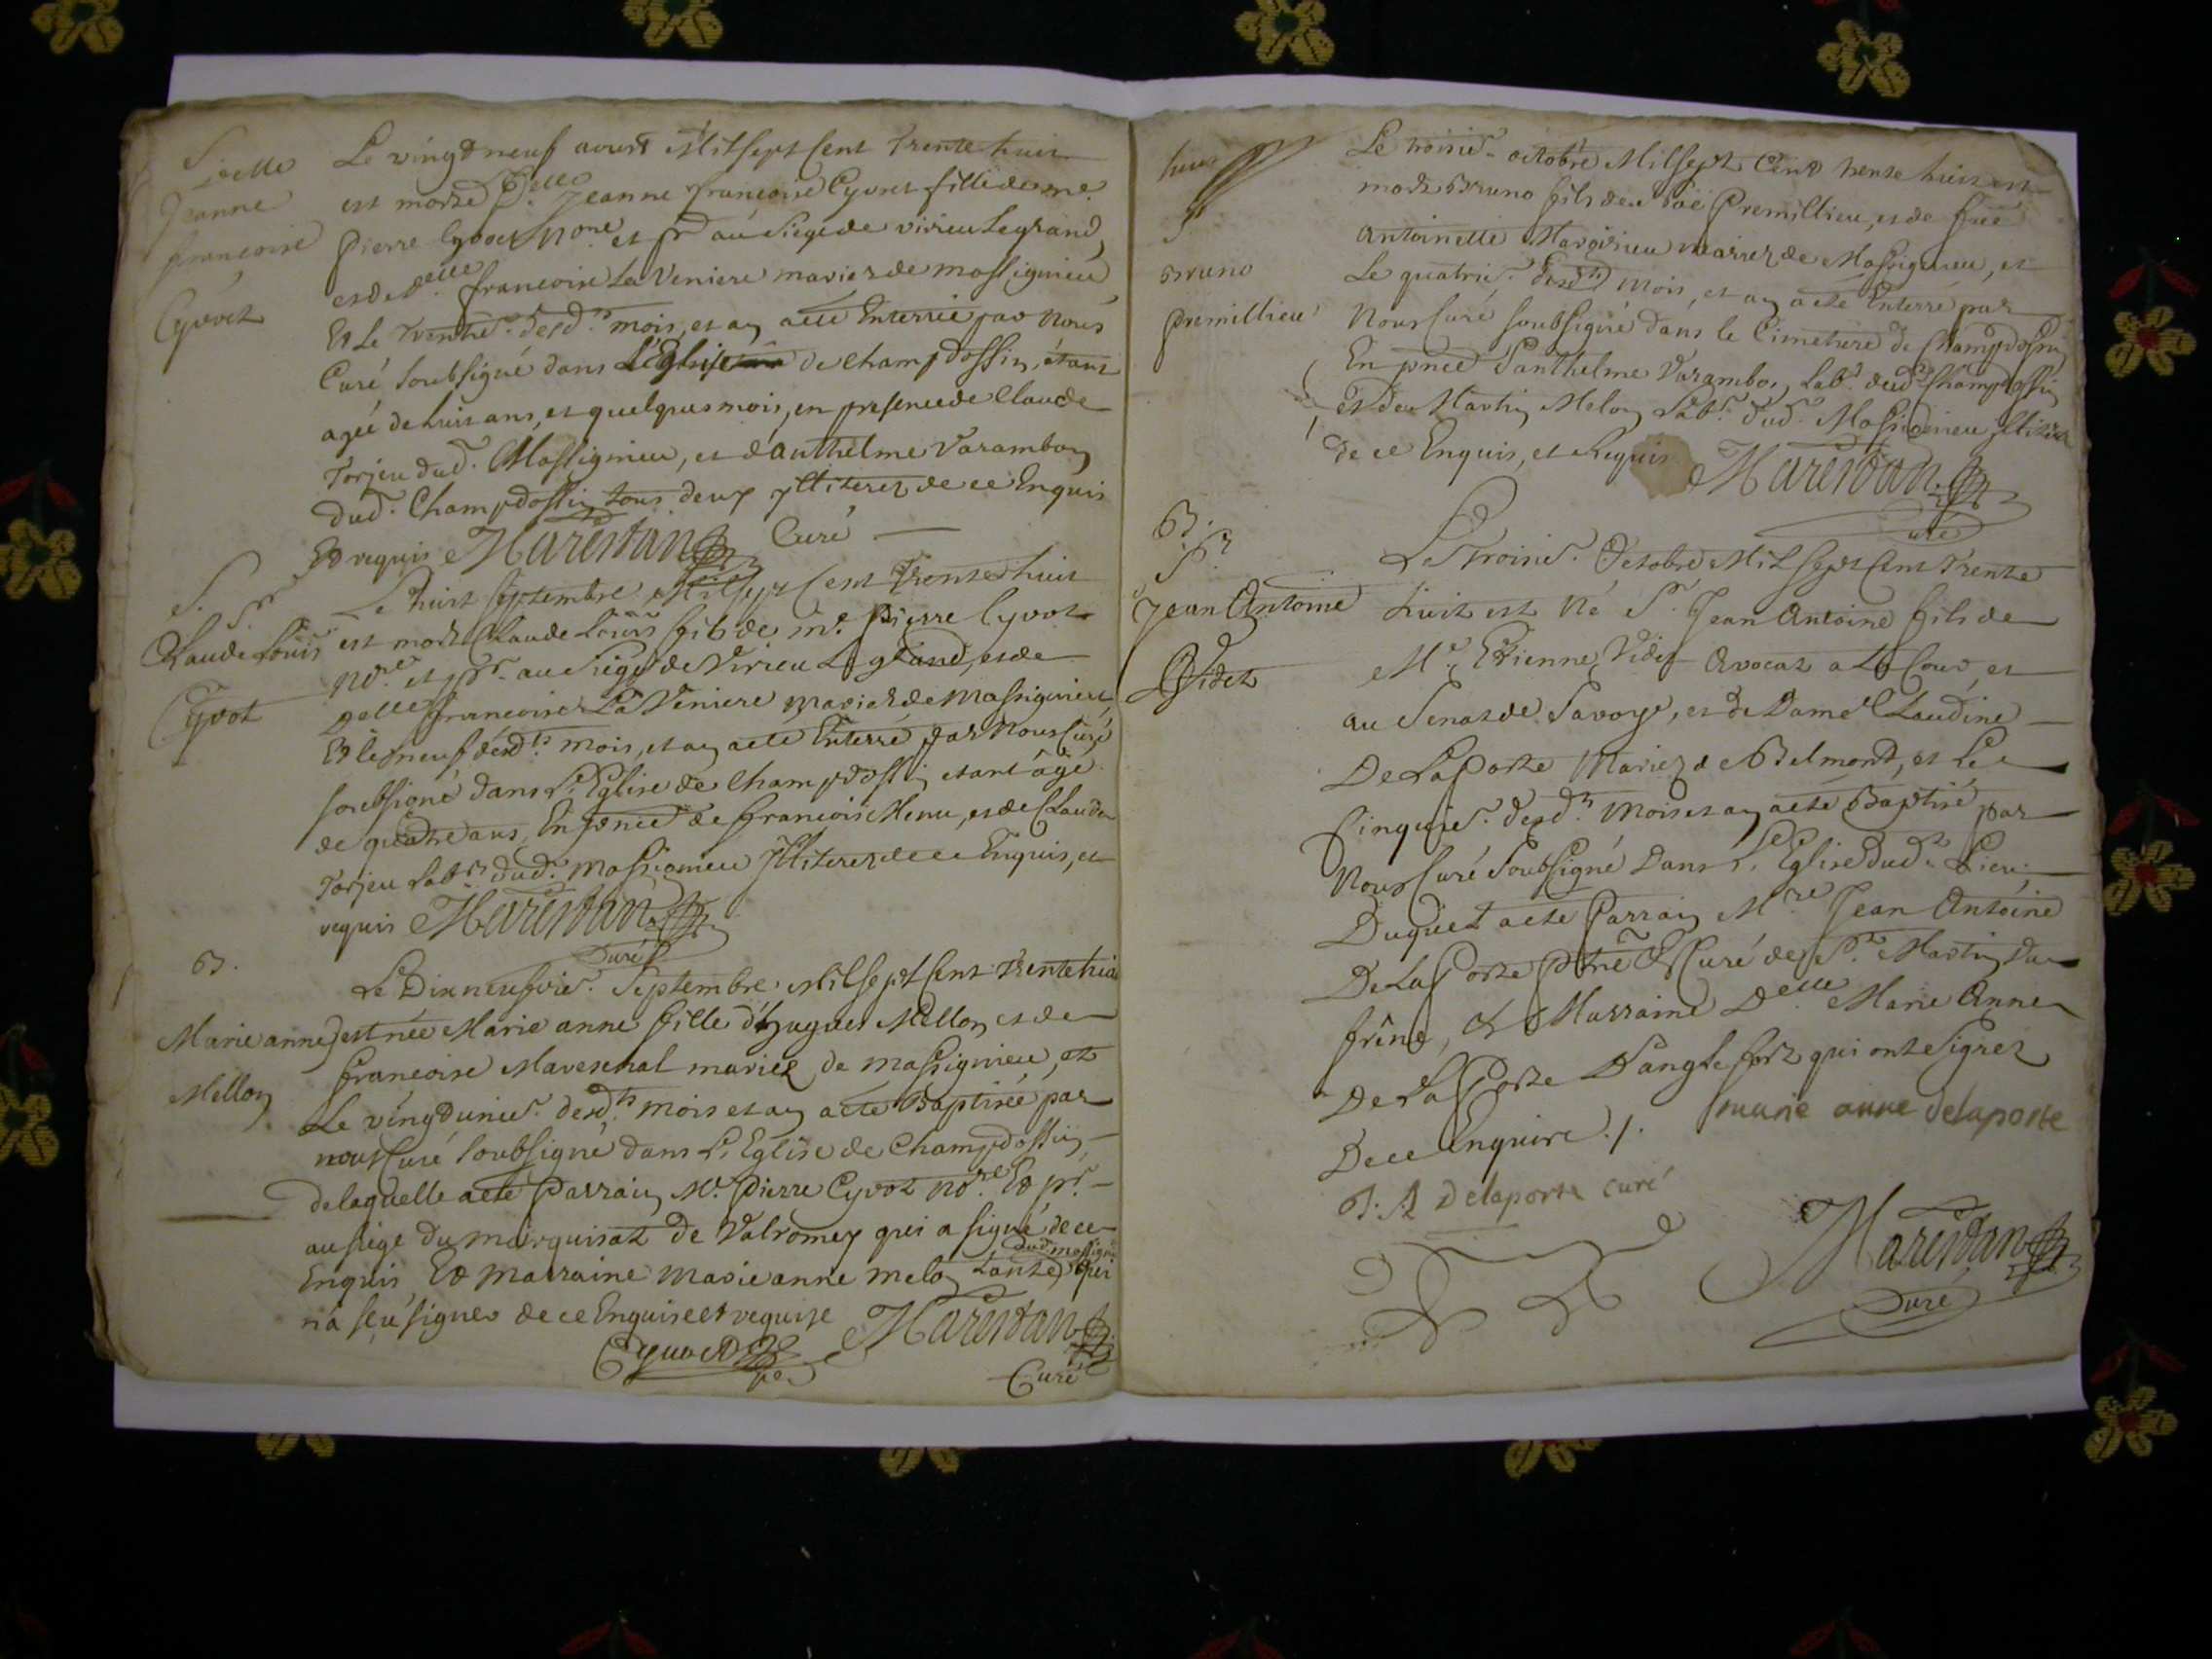 S.
Delle
Jeanne
francoise
Cyvot
Le vingt neuf aoust Mil sept Cent Trente huit
est morte D.elle Jeanne francoise Cyvot fille de me.
Pierre Cyvot No.re et pr. au Siege de virieu Le grand,
et de d.elle francoise La Veniere mariez de massignieu
Et Le Trentie. desd.ts mois, et an a eté Enterrée par Nous
Curé soubsigné dans L'Eglise de Champdossin, étant
agée de huit ans, et quelques mois, en presence de Claude
Torjeu dud. Massignieu, et d'anthelme Varambon
dud. Champdossin tous deux jlliterez de ce Enquis
Et requis Marestan Curé
S.
Sr.
Claude Louis
Cyvot
Le huit septembre Mil sept Cent Trente huit
est mort Claude Louis fils de me. Pierre Cyvot
No.re et pr. au Siege de Virieu Le grand, et de
Delle francoise La Veniere mariez de Massignieu,
Et le neuf desd.ts mois, et an a eté Enterré par Nous Curé
soubsigné dans L'Eglise de Champdossin etant âgé
de quatre ans, En pnce de francois Menu, et de Claude
Torjeu Labrs. dud. Massignieu Jlliterez de ce Enquis, et
requis Marestan
Curé
B.
Marie anne
Mellon
Le Dixneufvie. Septembre Mil sept Cent Trente huit
est née Marie anne fille d'hugues Mellon, et de
francoise Mareschal mariez de massignieu, et
Le vingt unie. desd.ts mois et an a eté Baptisée par
nous Curé soubsigné dans L'Eglise de Champdossin
de laquelle a eté Parrain Me. Pierre Cyvot No.re Et pr.
au siege du marquisat de Valromey qui a signé de ce
dud massignieu
Enquis, Et Marraine Marie anne melon tante qui
n'a sçeu signer de ce Enquise et requise
Cyvot Marestan
Curé
S.
Bruno
Premillieu
Le troisie. octobre Mil sept Cent trente huit est
mort Bruno fils de Premillieu, et de
Antoinette mariez de Massignieu, et
Le quatrie. desd.ts mois, et an a eté Enterré par
Nous Curé soubsigné dans le Cimetiere de Champdossin
En pnce d'anthelme Varambon, Labr. dud. Champdossin
et de Martin Melon Labr. dud. Massignieu jlliterez
de ce Enquis, et Requis Marestan
Curé
B.
Sr.
Jean Antoine
Videt
Le Troisie. Octobre Mil Sept Cent Trente
huit est Né Sr. Jean Antoine fils de
Me. Etienne Videt Avocat a La Cour, et
au Senat de Savoye, et de Dame Claudine
De La Porte Mariez de Belmont, et Le
Cinquie. desd.ts Mois et an a eté Baptisé par
Nous Curé Soubsigné Dans L'Eglise dud. Lieu;
Duquel a eté Parrain Mre. Jean Antoine
De La Porte Ptre & Curé de St. Martin Du
frêne, & Marraine Delle Marie Anne
De La Porte D'anglefort qui ont Signez
De ce Enquire ./. marie anne delaporte
Delaporte curé
Marestan
Curé